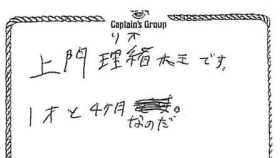 Captain's Group
リオ
上門 理緒 大王 です。
1才と4ヶ月
なのだ